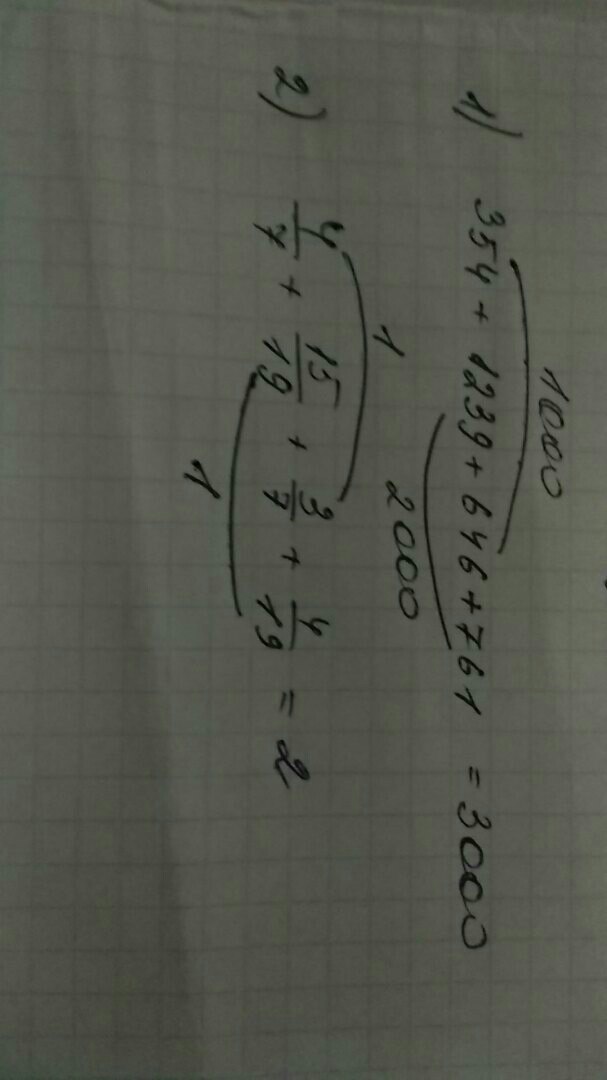 1000
1) 354 + 1239 + 646 + 761 = 3000
2000
1
2) 4/7 + 15/19 + 3/7 + 4/19 = 2
1